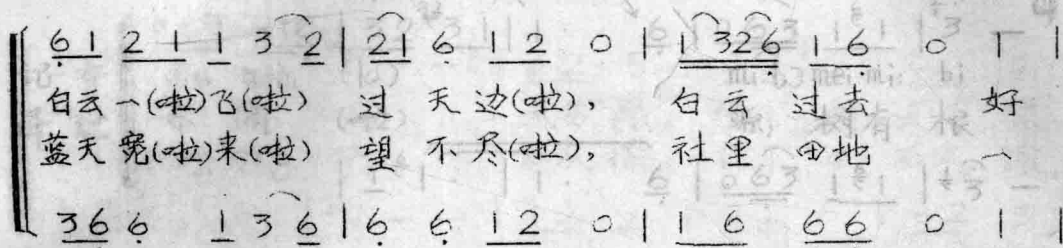 6 1 2 1 1 3 2 | 2 1 6 1 2 0 | 1 3 2 6 1 6 0 1 |
白云一(啦)飞(啦) 过 天 边(啦)， 白 云 过 去 好
蓝天宽(啦)来(啦) 望 不 尽(啦)， 社 里 田地 一
3 6 6 1 3 6 | 6 6 1 2 0 | 1 6 6 6 0 1 |